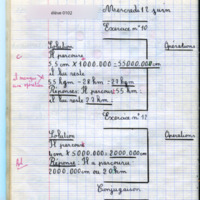 Mercredi 12 juin
Exercice n° 10
Solution
Opérations
Il parcourt
5,5 cm X 1000.000 = 55000.000 cm
Il lui reste
55 km - 28 km = 27 km
Réponse: Il parcourt 55 km
Il lui reste 27 km
Exercice n° 11
Solution
Opérations
Il parcourt
4 cm X 5000.000 = 2000.000 cm
Réponse: Il a parcouru
2000.000 cm ou 20 km
Conjugaison